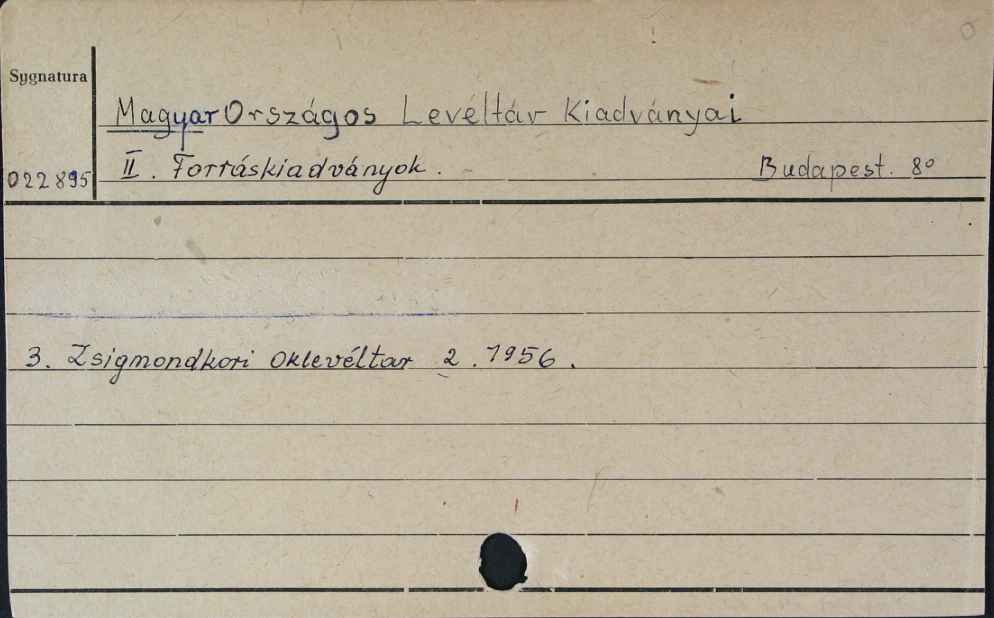 Sygnatura
Magyar Országos Levéltár Kiadványai
022895 II. Forráskiadványok. Budapest. 8°
3. Zsigmondkori oklevéltar 2. 1956.